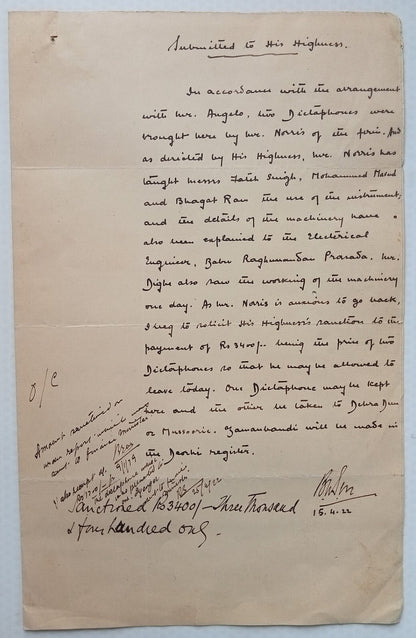 Submitted to His Highness.
In accordance with the arrangement
with Mr. Angelo, two Dictaphones were
brought here by Mr. Norris of the firm. And
as directed by His Highness, Mr. Norris has
taught Messrs Fateh Singh, Mohammed Masud
and Bhagat Ram the use of the instrument;
and the details of the machinery have
also been explained to the Electrical
Engineer, Babu Raghunandan Prasada. Mr.
Dighe also saw the working of the machinery
one day. As Mr. Norris is anxious to go back,
I beg to solicit His Highness's sanction to the
payment of Rs 3400/- being the price of two
Dictaphones so that he may be allowed to
leave today. One Dictaphone may be kept
here and the other be taken to Dehra Dun
or Mussoorie. Zamanbandi will be made in
the Deorhi register.
15.4.22
O/C
Amount sanctioned on
main report which was
sent to finance minister
Sanctioned Rs 3400/- Three Thousand
& four hundred only.